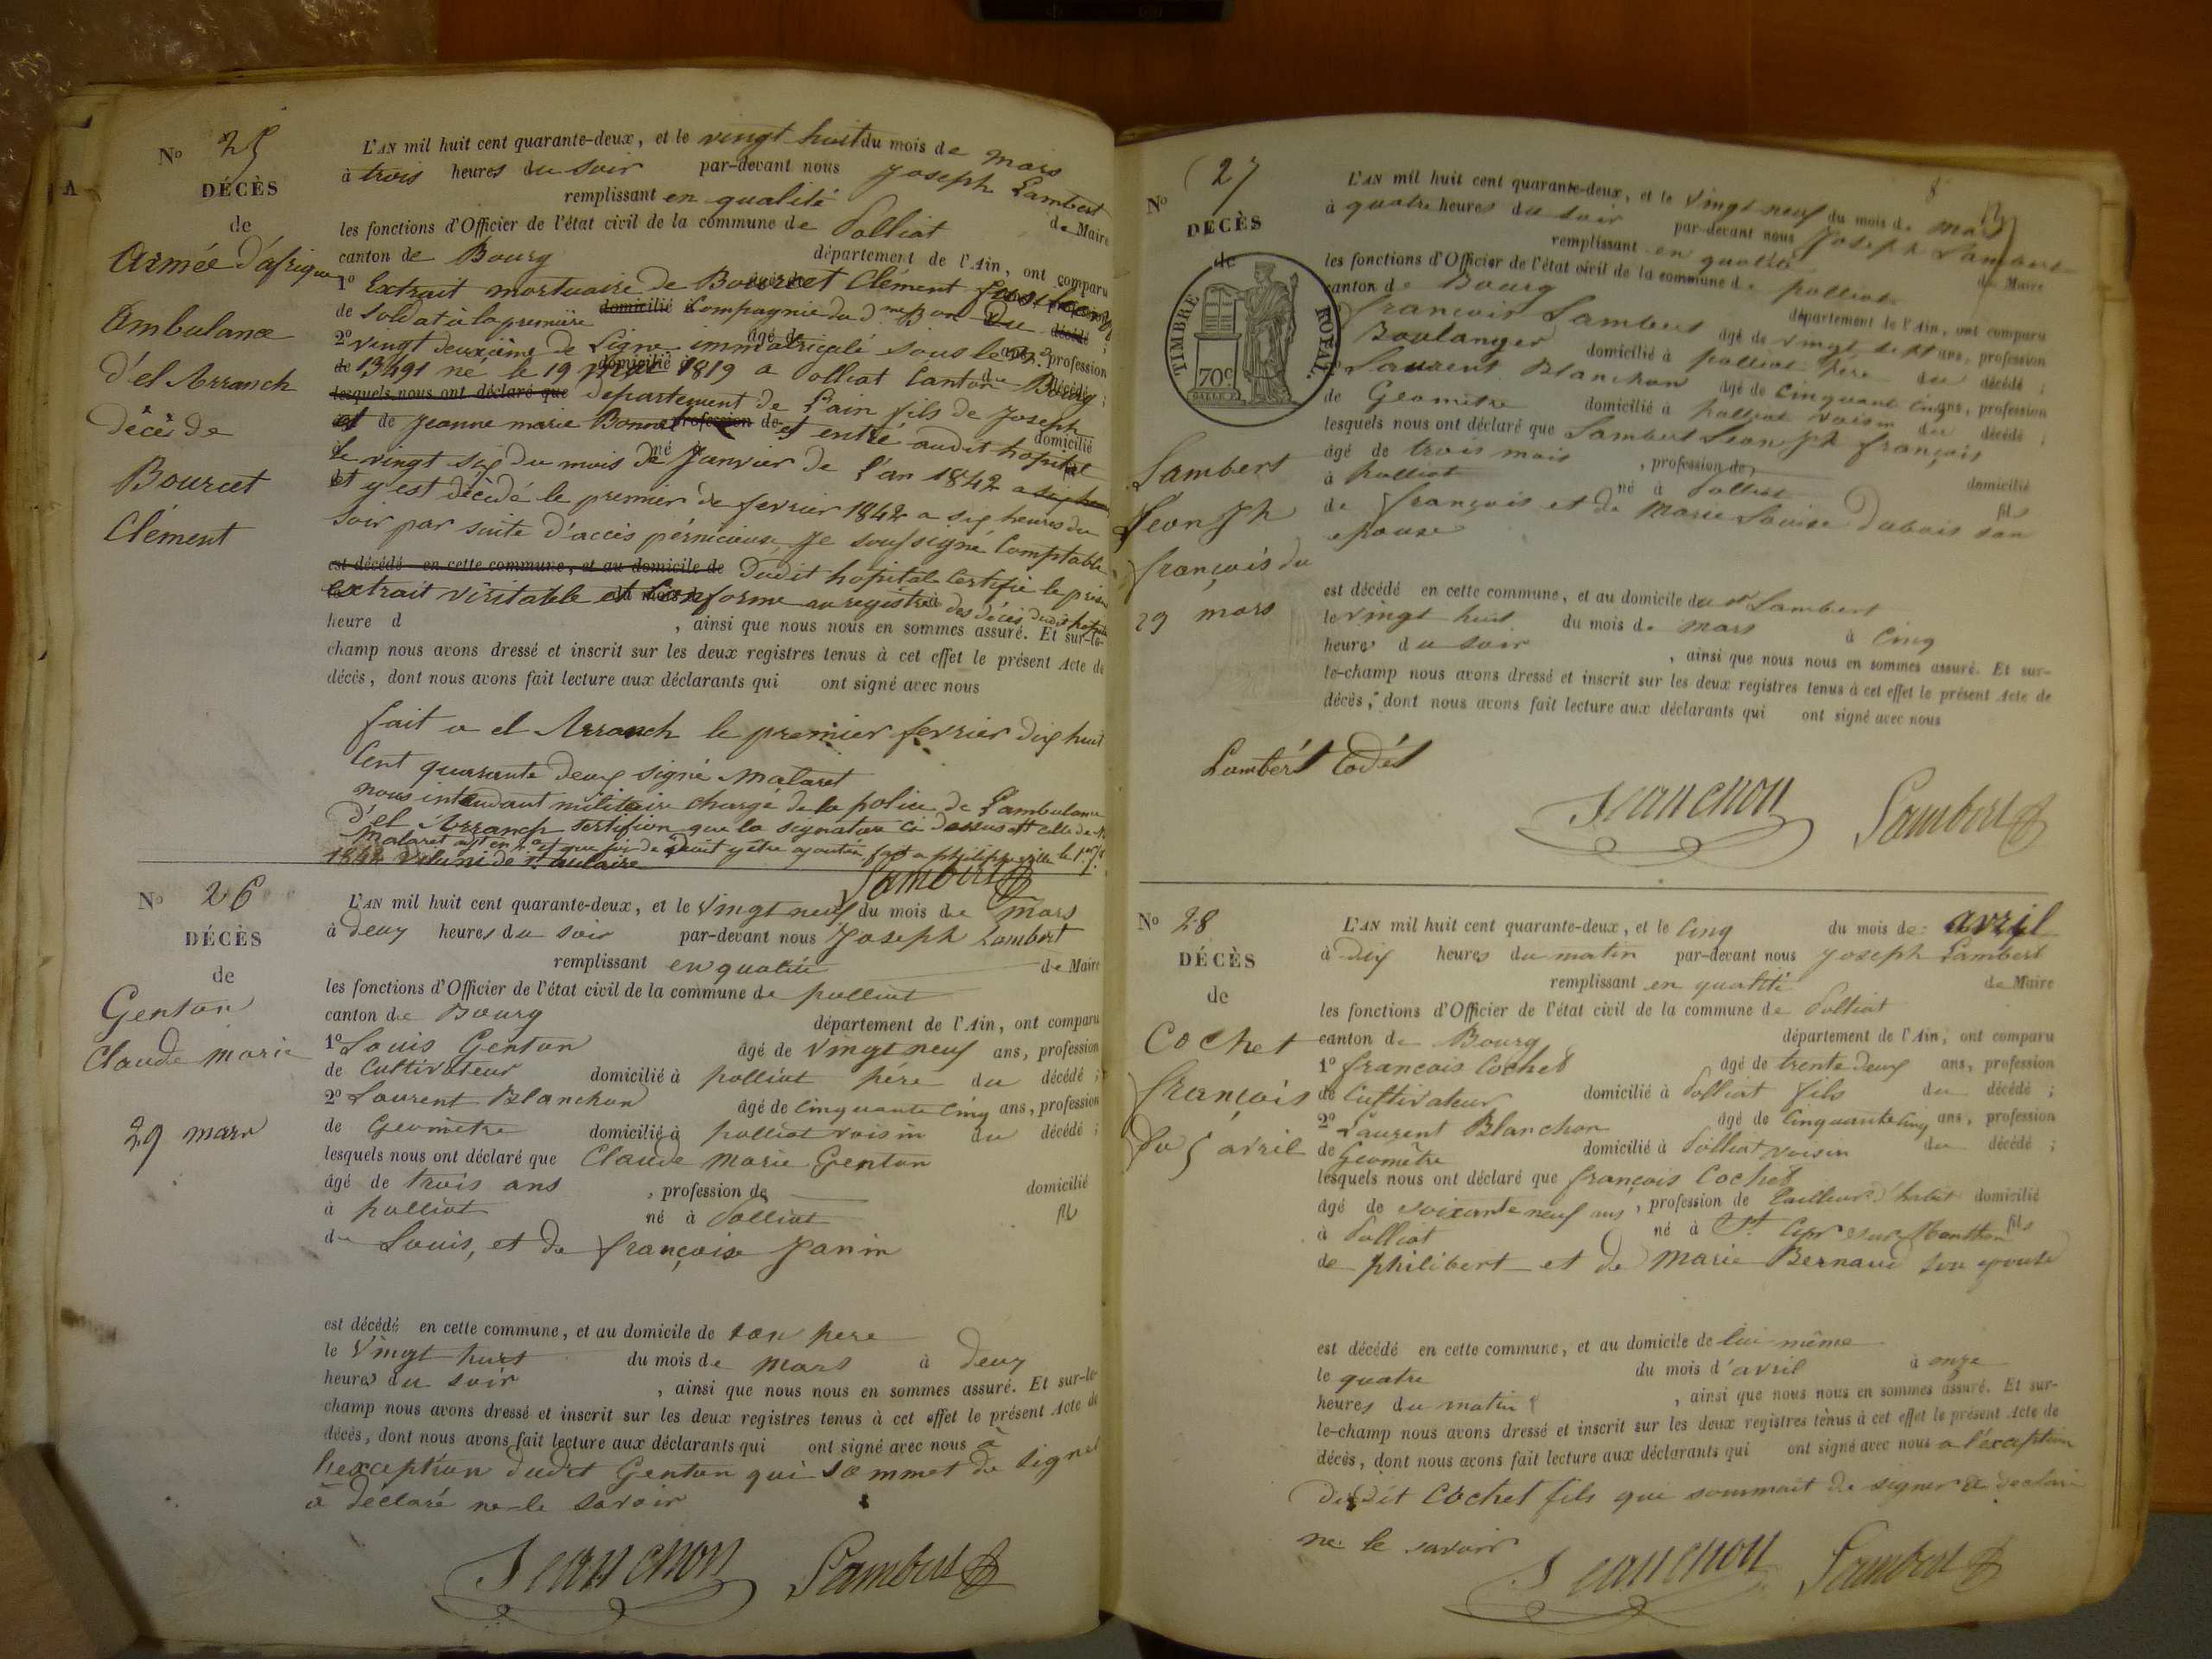 A
N° 25
DÉCÈS
de
Armée d'afrique
Ambulance
d'el Arranch
décès de
Bourcet
Clément
L'AN mil huit cent quarante-deux, et le vingt huit du mois de mars
à trois heures du soir par-devant nous Joseph Lambert
remplissant en qualité de Maire
les fonctions d'Officier de l'état civil de la commune de Polliat
canton de Bourg département de l'Ain, ont comparu
1° Extrait mortuaire de Bourcet Clément
de soldat à la première domicilié Compagnie du Bon du décédé ;
2° vingt deuxième de Ligne immatriculé sous le profession
de 13491 né le 19 1819 a Polliat Canton de Bourg
lesquels nous ont déclaré que département de l'ain fils de Joseph
et de Jeanne marie Bonnet profession de et entré audit hopital domicilié
le vingt six du mois de Janvier de l'an 1842
et y est décédé le premier de fevrier 1842 a six heures du
soir par suite d'accès pérnicieuse, je soussigné Comptable
est décédé en cette commune, et au domicile de dudit hopital Certifie le
extrait véritable et Conforme au registre des décès dudit
heure d , ainsi que nous nous en sommes assuré. Et sur-le-
champ nous avons dressé et inscrit sur les deux registres tenus à cet effet le présent Acte de
décès, dont nous avons fait lecture aux déclarants qui ont signé avec nous
fait a el Arranch le premier fevrier dix huit
Cent quarante deux signé Mataret
nous intendant militaire chargé de la police de l'ambulance
d'el Arranch Sertifion que la signature ci dessus est celle de M.
Mataret et que foi doit y être ajoutée fait a philippeville le
1842
Lambert
N° 26
DÉCÈS
de
Genton
Claude marie
29 mars
L'AN mil huit cent quarante-deux, et le Vingt neuf du mois de mars
à deux heures du soir par-devant nous Joseph Lambert
remplissant en qualité de Maire
les fonctions d'Officier de l'état civil de la commune de polliat
canton de Bourg département de l'Ain, ont comparu
1° Louis Genton âgé de Vingt neuf ans, profession
de Cultivateur domicilié à polliat père du décédé ;
2° Laurent Blanchon âgé de Cinquante Cinq ans, profession
de Géomètre domicilié à polliat voisin du décédé ;
lesquels nous ont déclaré que Claude Marie Genton
âgé de trois ans , profession de domicilié
à polliat né à Polliat fils
de Louis, et de françoise Janin
est décédé en cette commune, et au domicile de son pere
le Vingt huit du mois de mars à deux
heures du soir , ainsi que nous nous en sommes assuré. Et sur-le-
champ nous avons dressé et inscrit sur les deux registres tenus à cet effet le présent Acte de
décès, dont nous avons fait lecture aux déclarants qui ont signé avec nous à
l'exception dudit Genton qui sommet de signer
à déclaré ne le savoir
Lambert
8
N° 27
DÉCÈS
de
TIMBRE ROYAL.
70c
Lambert
Leon Jh
françois du
29 mars
L'AN mil huit cent quarante-deux, et le Vingt neuf du mois de mars
à quatre heures du soir par-devant nous Joseph Lambert
remplissant en qualité de Maire
les fonctions d'Officier de l'état civil de la commune de polliat
canton de Bourg département de l'Ain, ont comparu
françois Lambert âgé de vingt sept ans, profession
Boulanger domicilié à polliat père du décédé ;
Laurent Blanchon âgé de Cinquante Cinq ans, profession
de Géomètre domicilié à polliat voisin du décédé ;
lesquels nous ont déclaré que Lambert Leon Jh françois
âgé de trois mois , profession de domicilié
à Polliat né à Polliat fils
de françois et de Marie Louise Dubois son
epouse
est décédé en cette commune, et au domicile du sr Lambert
le vingt huit du mois de mars à Cinq
heures du soir , ainsi que nous nous en sommes assuré. Et sur-
le-champ nous avons dressé et inscrit sur les deux registres tenus à cet effet le présent Acte de
décès, dont nous avons fait lecture aux déclarants qui ont signé avec nous
Lambért
Lambert
N° 28
DÉCÈS
de
Cochet
françois
du 5 avril
L'AN mil huit cent quarante-deux, et le Cinq du mois de avril
à dix heures du matin par-devant nous Joseph Lambert
remplissant en qualité de Maire
les fonctions d'Officier de l'état civil de la commune de Polliat
canton de Bourg département de l'Ain, ont comparu
1° francois Cochet âgé de trente deux ans, profession
de Cultivateur domicilié à Polliat fils du décédé ;
2° Laurent Blanchon âgé de Cinquante Cinq ans, profession
de Géomètre domicilié à Polliat voisin du décédé ;
lesquels nous ont déclaré que françois Cochet
âgé de soixante neuf ans , profession de tailleur d'habit domicilié
à Polliat né à St Cyr sur Menthon fils
de philibert et de Marie Bernaud son epouse
est décédé en cette commune, et au domicile de lui même
le quatre du mois d'avril à onze
heures du matin , ainsi que nous nous en sommes assuré. Et sur-
le-champ nous avons dressé et inscrit sur les deux registres tenus à cet effet le présent Acte de
décès, dont nous avons fait lecture aux déclarants qui ont signé avec nous a l'éxception
dudit Cochet fils que sommait de signer a declaré
ne le savoir
Lambert